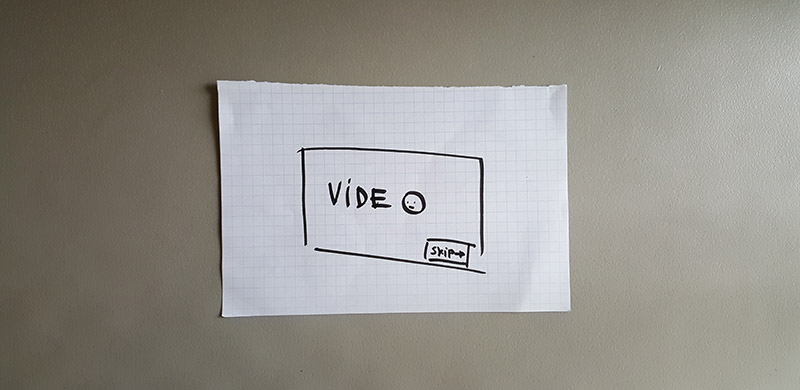 ViDEO
skip→